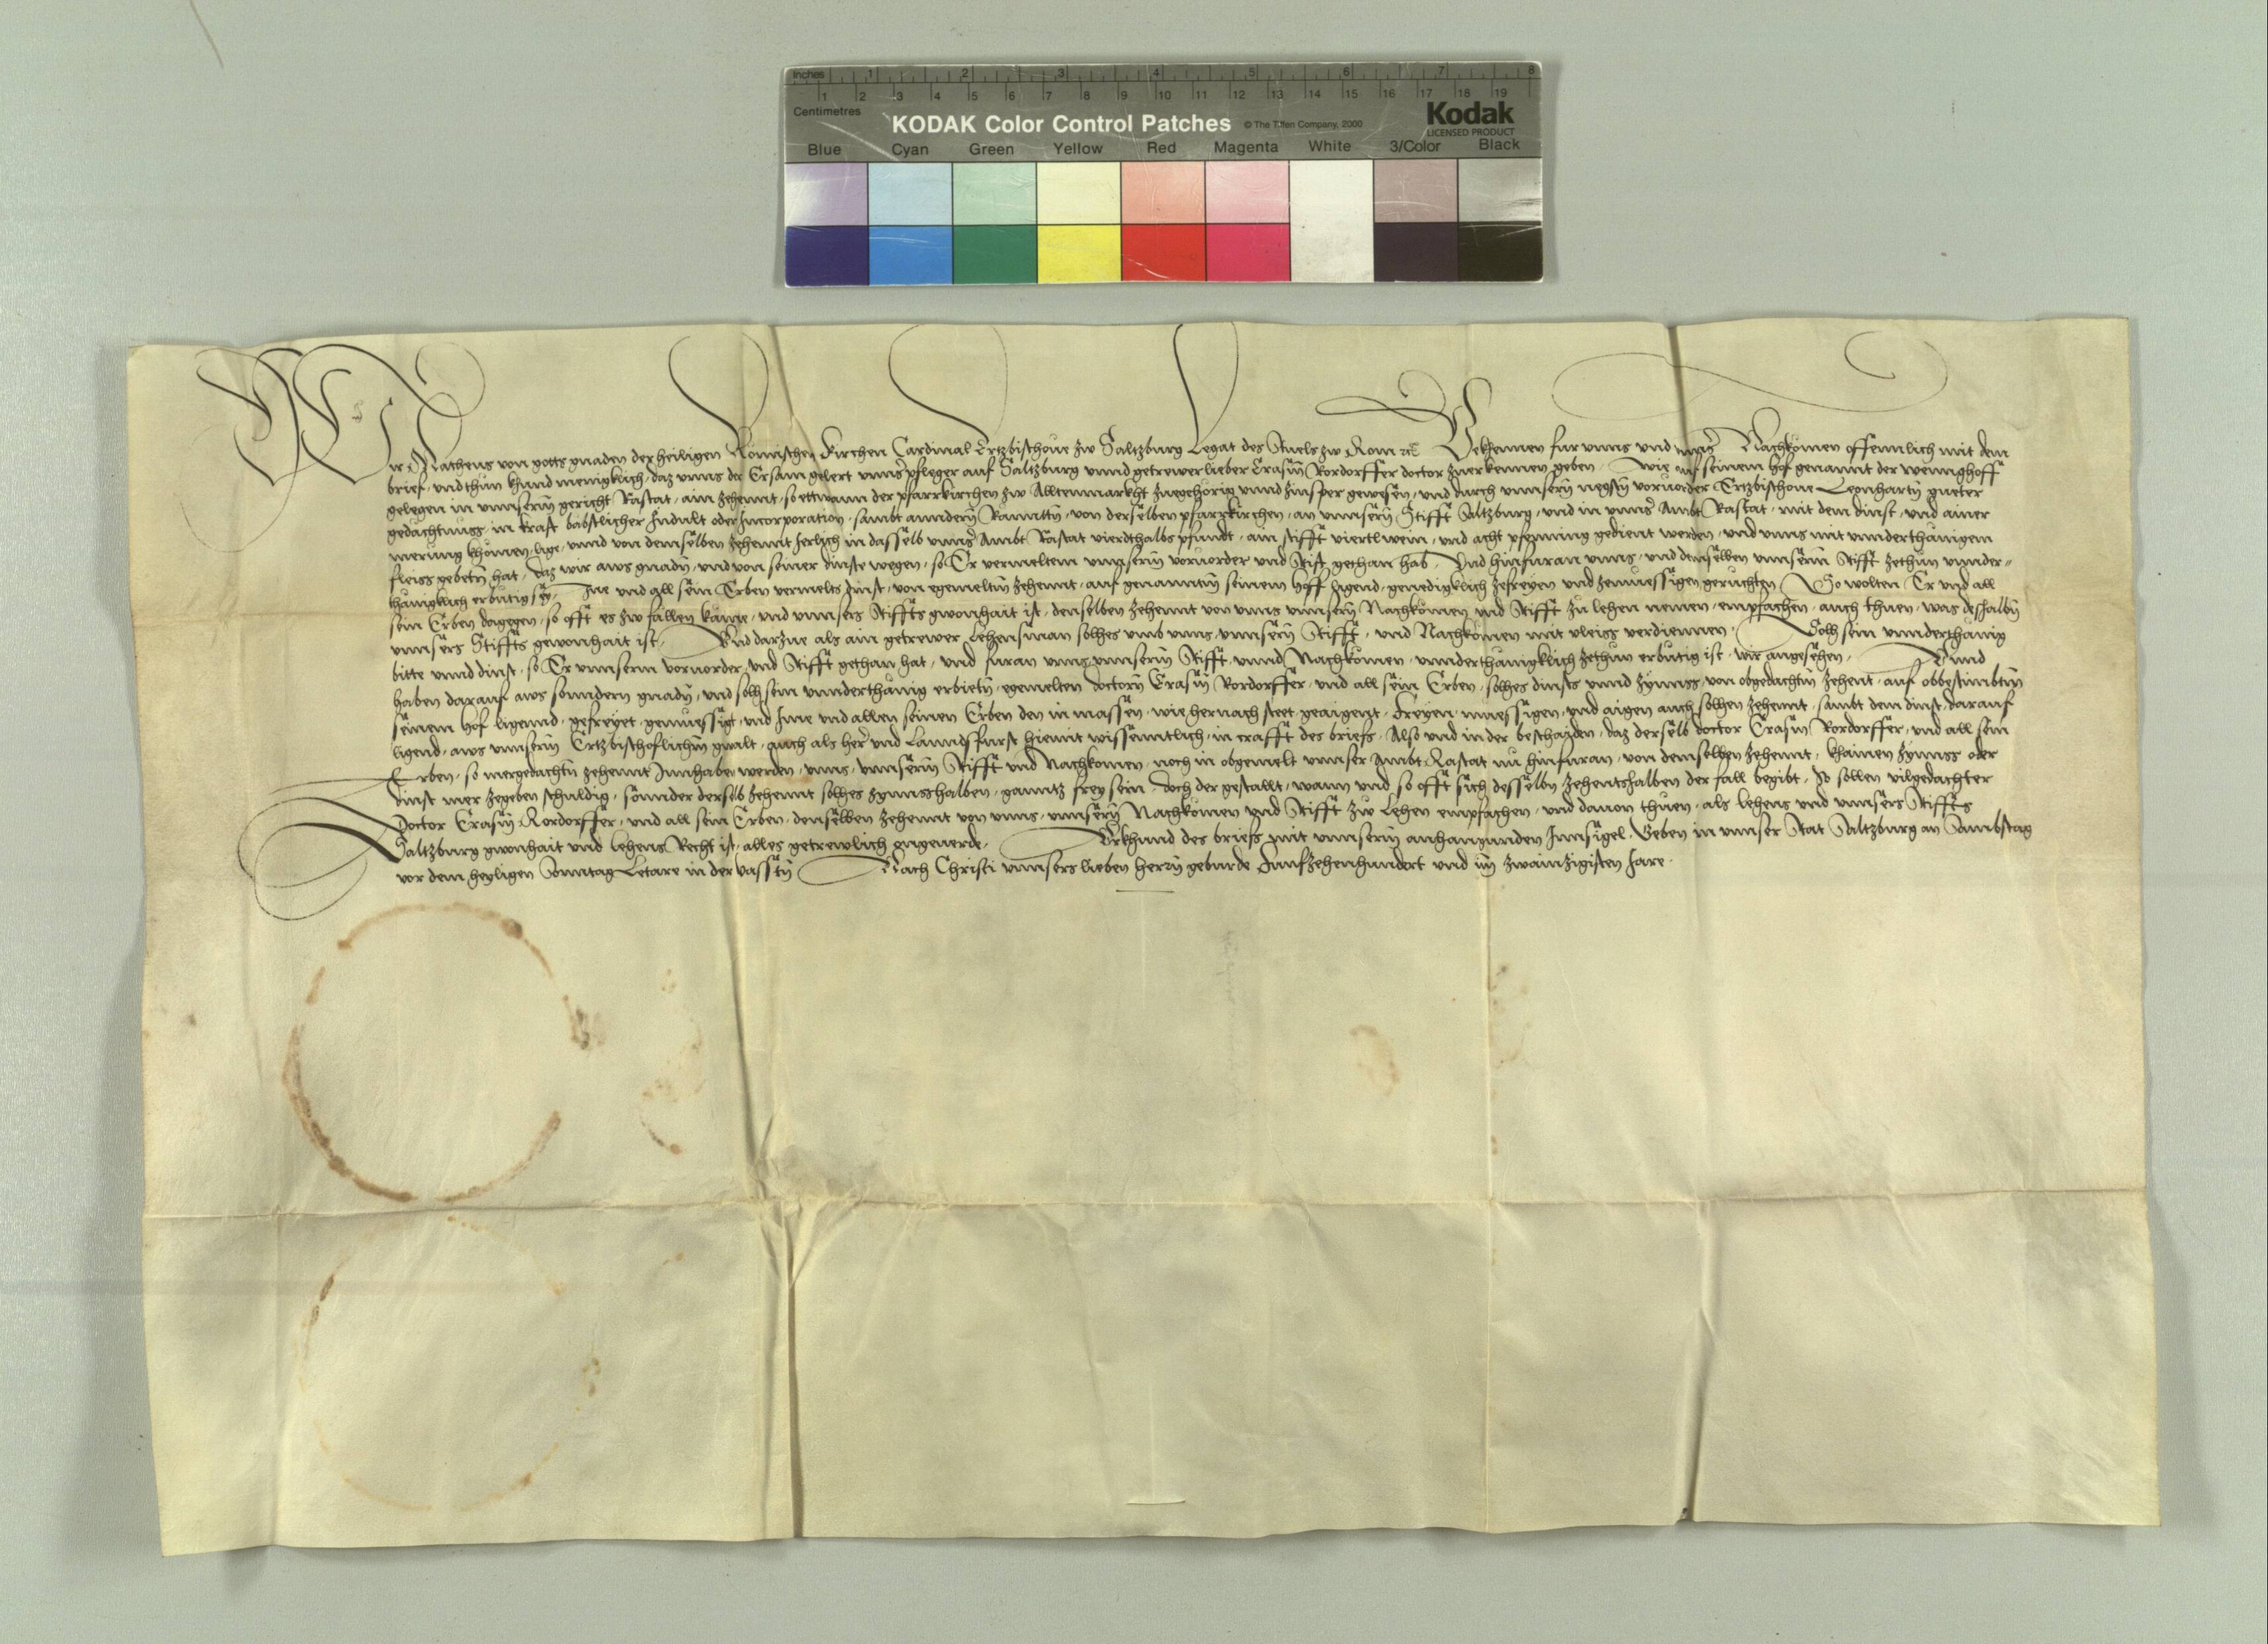 Inches 1 2 3 4 5 6 7 8
1 2 3 4 5 6 7 8 9 10 11 12 13 14 15 16 17 18 19
Centimetres
KODAK Color Control Patches © The Tiffen Company, 2000 Kodak
LICENSED PRODUCT
Blue Cyan Green Yellow Red Magenta White 3/Color Black
Wir Matheus von gotts gnaden der heiligen Römischen Kirchen Cardinal Ertzbischoue zw Saltzburg Legat des Stuels zw Rom Bekhennen fur unns und Nachkomen offennlich mit dem
brief, und thun khund menigklich, daz unns der Ersam gelert unnser pfleger auf Saltzburg unnd getrewer lieber Erasm Rordorffer doctor zuerkennen geben. Wie auf seinem hof genannt der Wenighoff
gelegen in unnserm gericht Rastat, ain zehennt, so ettwann der pfarrkirchen zw Alltenmarkht zuegehörig unnd zinsper gewesen, und durch unnsern negsten voruorder Ertzbischoue Leonharten gueter
gedächtnuss, in krafft bäbstlicher Indult oder Incorporation, sambt anndern, von derselben pfarrkirchen, an unnsern Stifft Saltzburg, und in unnser Ambt Rastat, mit dem dinst, und ainer
merung khömen lige, unnd von demselben zehennt Jerlich in dasselb unnser Ambt Rastat vierdthalbs pfundt, am stifft viertlwein, und acht pfenning gedient werden, und unns mit underthänigem
fleiss gebetn hat, daz wir aws gnadn, und von seiner dinste wegen, so Er vermeltem unnserm voruorder und Stift gethan hab. Und hinfuran unns, und demselben unnserm Stifft zethun unnder=
thänigklich erbutig sey, Ine und all sein Erben vermelts dinst, von egemeltm zehennt, auf genanntm seinem hoff ligend, genedigklich zefreyen und zemuessigen geruchten. So wolten Er und all
sein Erben dagegen, so offt es zw fällen käme, und unnsers Stiffts gwonhait ist, denselben zehennt von unns unnsern Nachkömen und Stifft zu lehen nemen, empfachen, auch thuen, was desshalbn
unnsers Stiffts gewonhait ist. Und darzue als ain getrewer Lehensman solhes umb unns, unnsern Stifft, und Nachkömen mit vleiss verdiennen. Solh sein unnderthänig
bitte unnd dinst, so Er unnserm voruorder und Stifft gethan hat, und furan unns unnserm Stifft unnd Nachkömen, unnderthänigklich zethun erbutig ist, wir angesehen. Unnd
haben darauf aws sonndern gnadn, und solh sein unnderthänig erbietn, egemelten doctorn Erasm Rordorffer, und all sein Erben, solhes dinsts unnd zynnss, von obgedachtm zehent, auf obbestimbtm
seinem hof ligennd, gefreyet, gemuessigt, und Ime und allen seinen Erben den in massen, wie hernach steet, geaigent. Freyen, muessigen, und aigen auch solhen zehennt, sambt dem dinst, darauf
ligend, aws unnserm Ertzbischoflichm gwalt, auch als herr und Lanndsfurst hiemit wissenntlich, in crafft des briefs. Also und in der beschaiden, daz derselb doctor Erasm Rordorffer, und all sein
Erben, so mergedachtn zehennt Innhaben werden, unns, unnserm Stifft und Nachkomen, noch in obgemelt unnser Ambt Rastat nu hinfuran, von demselben zehennt, khainen zynnss oder
dinst mer zegeben schuldig, sonnder derselb zehennt solhes zynnsshalben, ganntz frey sein. Doch der gestallt, wann und so offt sich desselbn zehentshalben der fall begibt, So sollen vilgedachter
Doctor Erasm Rordorffer, und all sein Erben, denselben zehennt von unns, unnsern Nachkömen und Stifft zw Lehen empfachen, und dauon thuen, als lehens und unnsers Stiffts
Saltzburg gwonhait und lehens Recht ist, alles getrewlich ongeuerde. Urkhund des briefs mit unnserm anhanngunden Innsigel. Geben in unnser Stat Saltzburg an Sambstag
vor dem heyligen Sonntag Letare in der vasstn Nach Christi unnsers lieben herrn geburde Funfzehenhundert und im zwainzigisten Jare.